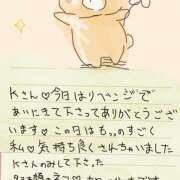 Kさん♡今日はリベンジで
あいにきて下さってありがとうござ
います♡この日はもっのすごく
私♡気持ち良くされちゃいました
Kさんのみして下さった